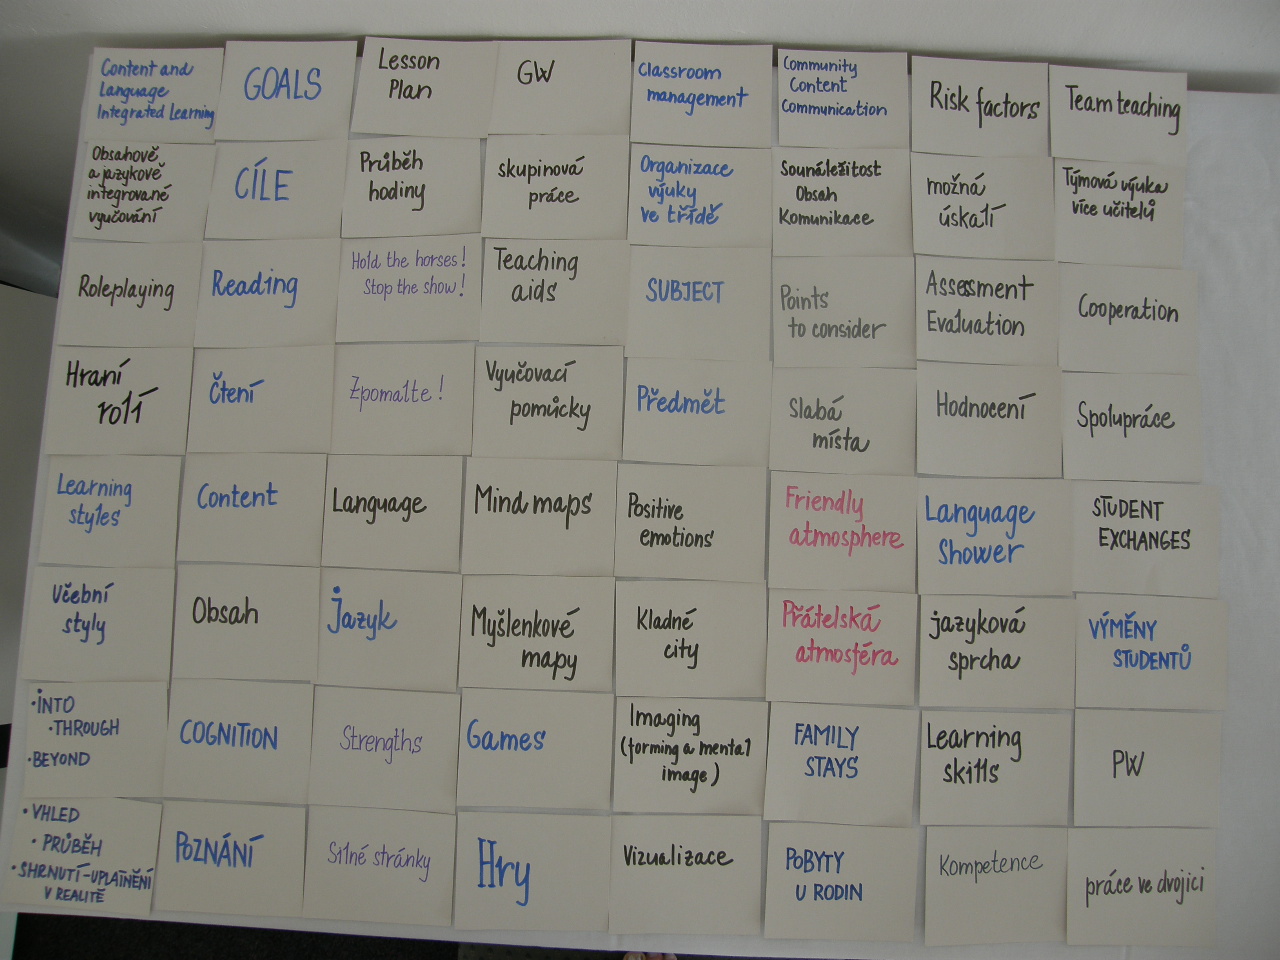 Content and
Language
Integrated Learning
GOALS
Lesson
Plan
GW
Classroom
management
Community
Content
Communication
Risk factors
Team teaching
Obsahově
a jazykově
integrované
vyučování
CÍLE
Průběh
hodiny
skupinová
práce
Organizace
výuky
ve třídě
Sounáležitost
Obsah
Komunikace
možná
úskalí
Týmová výuka
více učitelů
Roleplaying
Reading
Hold the horses!
Stop the show!
Teaching
aids
SUBJECT
Points
to consider
Assessment
Evaluation
Cooperation
Hraní
rolí
Čtení
Zpomalte!
Vyučovací
pomůcky
Předmět
Slabá
místa
Hodnocení
Spolupráce
Learning
styles
Content
Language
Mind maps
Positive
emotions
Friendly
atmosphere
Language
Shower
STUDENT
EXCHANGES
Učební
styly
Obsah
jazyk
Myšlenkové
mapy
Kladné
city
Přátelská
atmosféra
jazyková
sprcha
VÝMĚNY
STUDENTŮ
•INTO
•THROUGH
•BEYOND
COGNITION
Strengths
Games
Imaging
(forming a mental
image)
FAMILY
STAYS
Learning
skills
PW
•VHLED
•PRŮBĚH
•SHRNUTÍ-UPLATNĚNÍ
V REALITĚ
POZNÁNÍ
Silné stránky
Hry
Vizualizace
POBYTY
U RODIN
Kompetence
práce ve dvojici